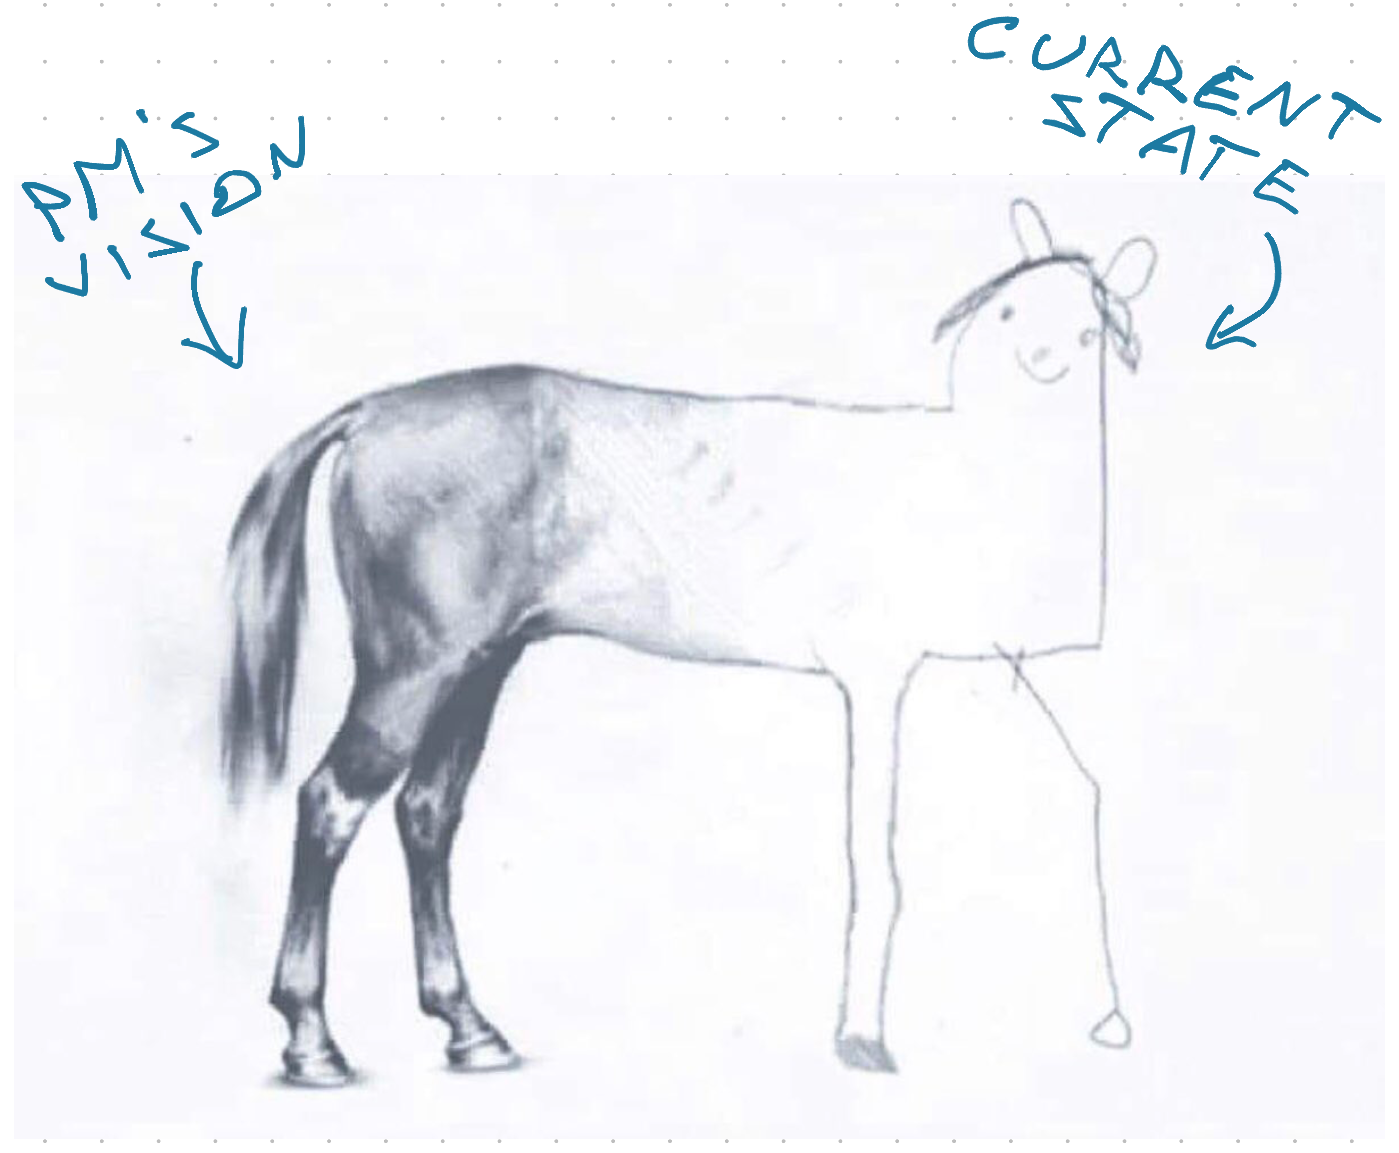 PM'S
VISION
CURRENT
STATE